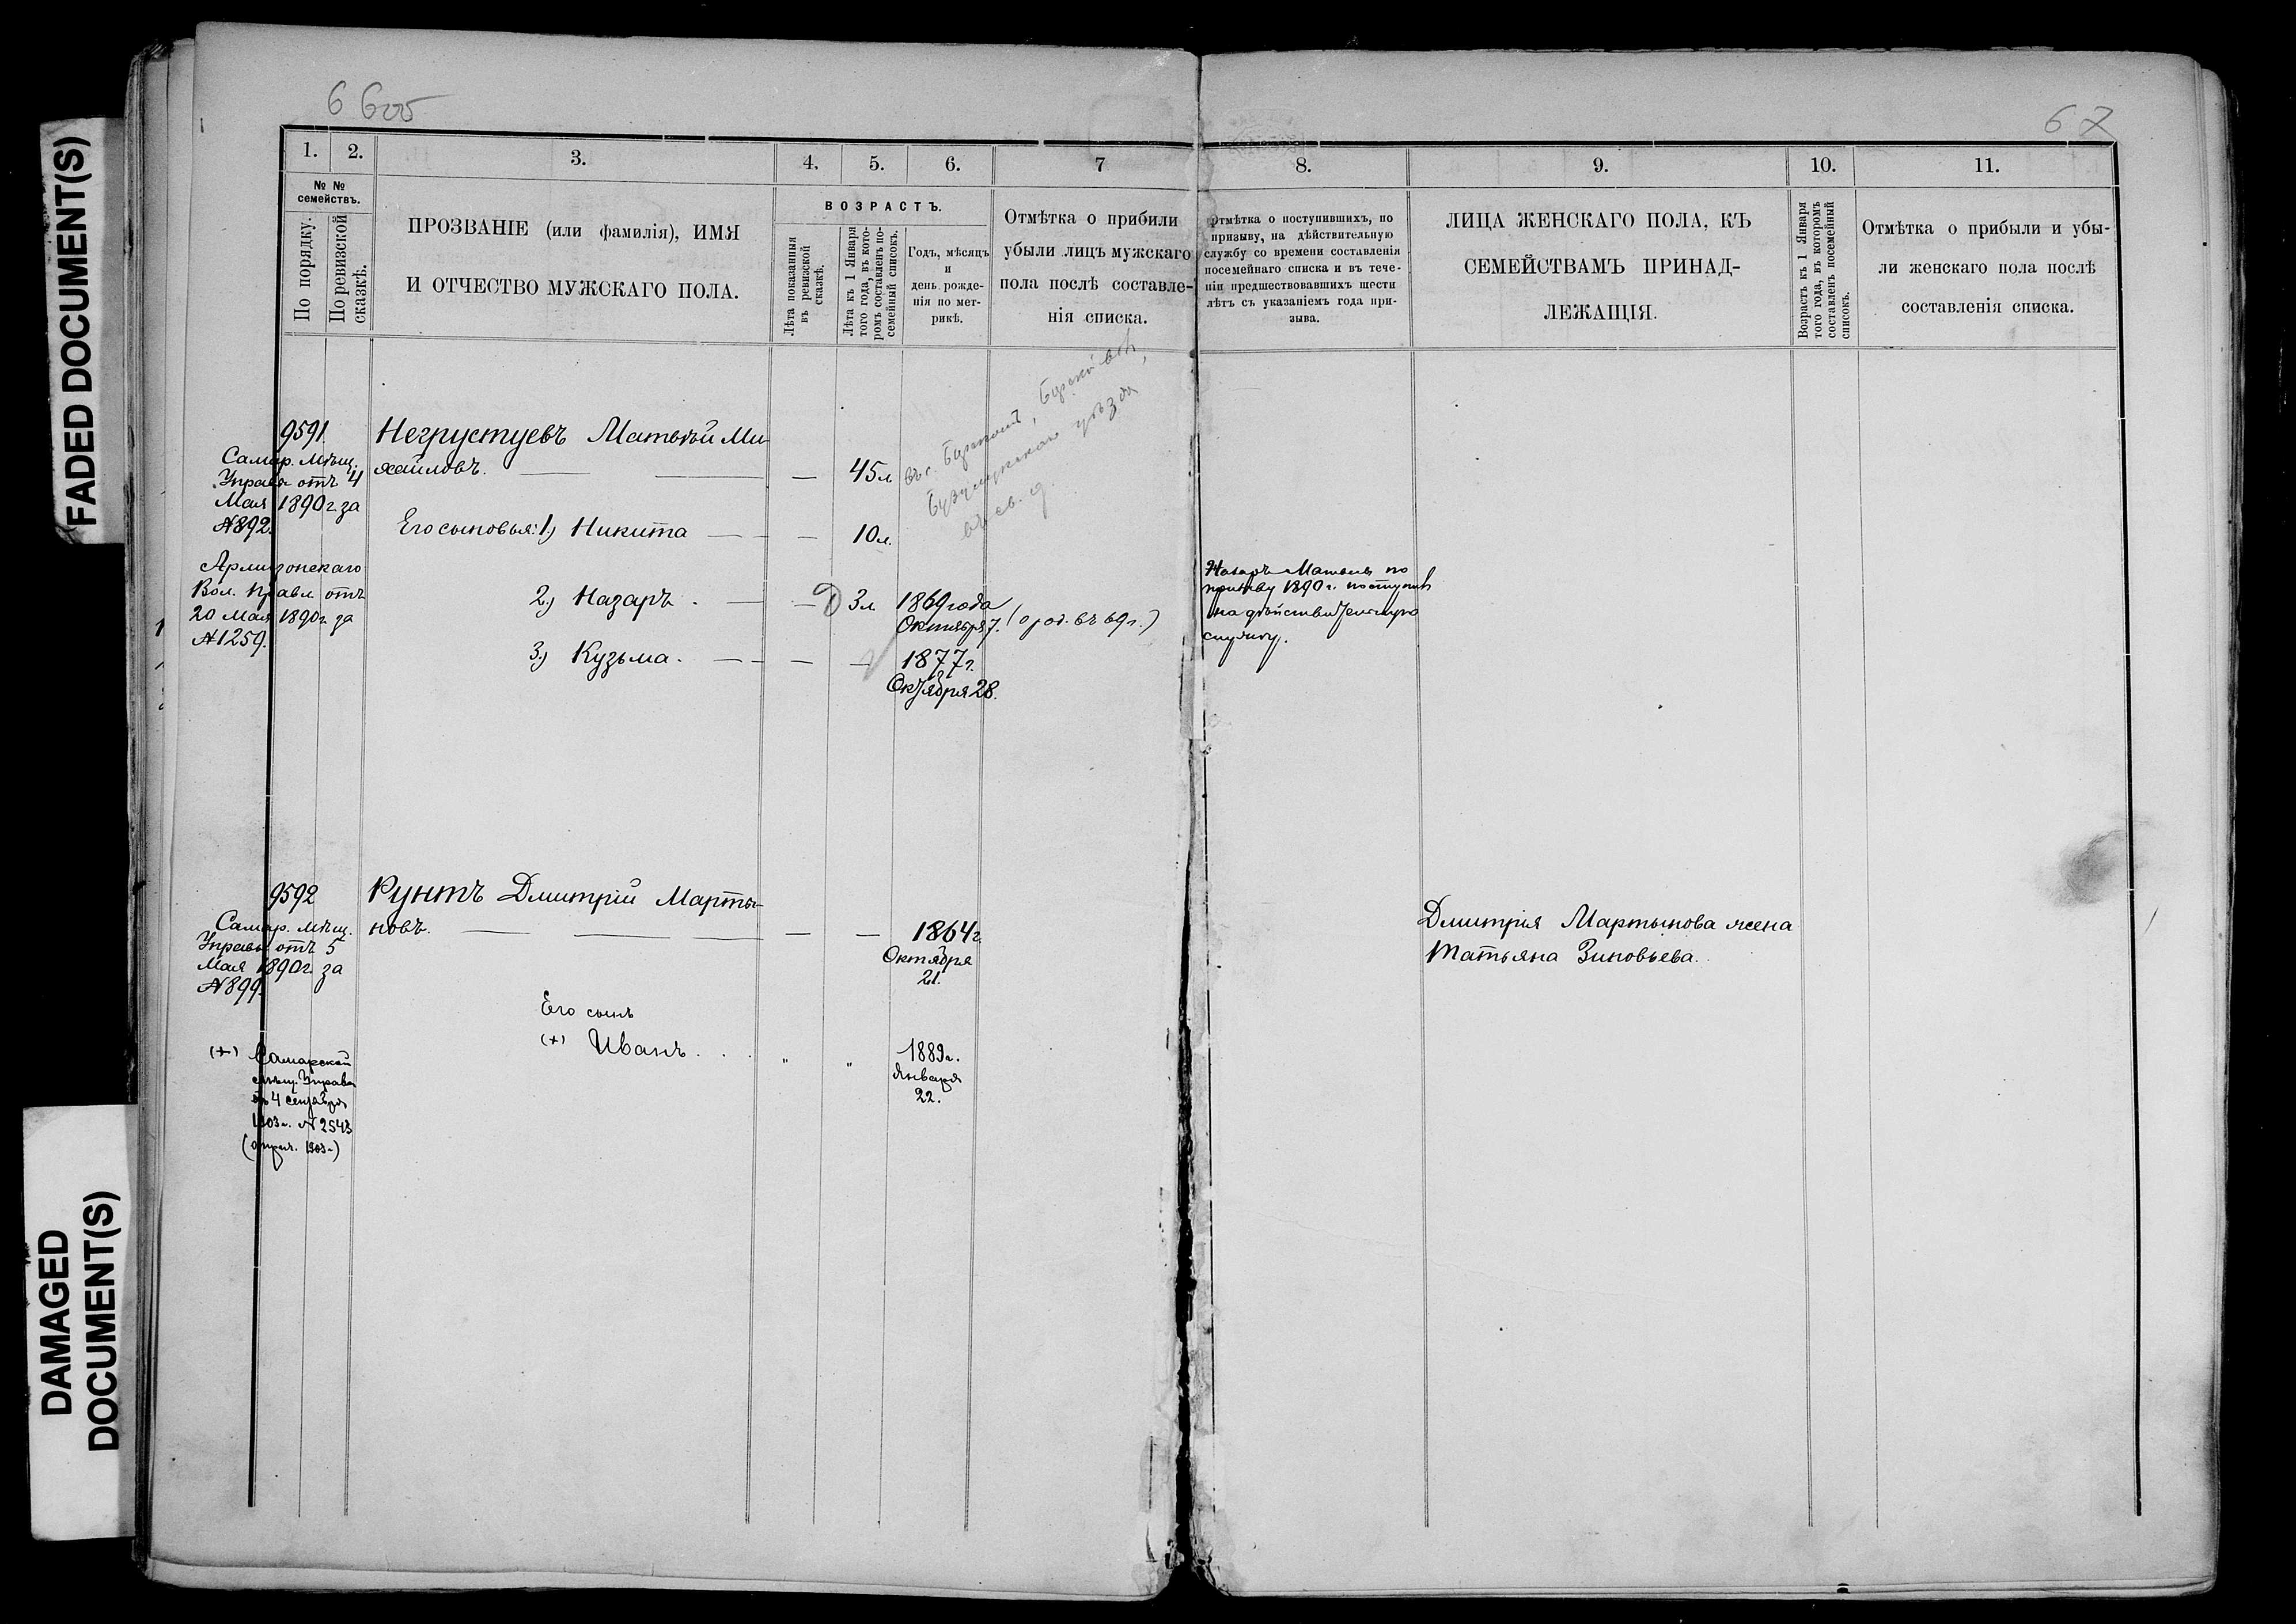 FADED DOCUMENT(S)
DAMAGED
DOCUMENT(S)
67
1.
2.
3.
4.
5.
6.
7
8.
9.
10.
11.
№ №
семействъ.
По порядку.
По ревизской
сказкѣ.
ПРОЗВАНІЕ (или фамилія), ИМЯ
И ОТЧЕСТВО МУЖСКАГО ПОЛА.
ВОЗРАСТЪ.
Лѣта показанныя
въ ревизской
сказкѣ.
Лѣта къ 1 Января
того года, въ кото-
ромъ составленъ по-
семейный списокъ.
Годъ, мѣсяцъ
и
день рожде-
нія по мет-
рикѣ.
Отмѣтка о прибили
убыли лицъ мужскаго
пола послѣ составле-
нія списка.
Отмѣтка о поступившихъ, по
призыву, на дѣйствительную
службу со времени составленія
посемейнаго списка и въ тече-
ніи предшествовавшихъ шести
лѣтъ съ указаніемъ года при-
зыва.
ЛИЦА ЖЕНСКАГО ПОЛА, КЪ
СЕМЕЙСТВАМЪ ПРИНАД-
ЛЕЖАЩІЯ.
Возрастъ къ 1 Января
того года, въ которомъ
составленъ посемейный
списокъ.
Отмѣтка о прибыли и убы-
ли женскаго пола послѣ
составленія списка.
9591.
Самар. Мѣщ.
Управа отъ 4
Мая 1890 г. за
№ 892.
Армизонскаго
Вол. Правл. отъ
20 Мая 1890 г. за
№ 1259.
Негрустуевъ Матвѣй Ми-
хайловъ. — — 45 л.
Его сыновья: 1) Никита — — 10 л.
2) Назаръ. — — 3 л. 1869 года
Октября 7. (о род. въ 69 г.)
3) Кузьма. — — — 1877 г.
Октября 28.
Бузулукскаго уѣзда
Назаръ Матвеевъ по
призыву 1890 г. поступилъ
на дѣйствительную
службу.
9592
Самар. Мѣщ.
Управы отъ 5
Мая 1890 г. за
№ 899.
Рунтъ Дмитрій Марты-
новъ. — — — — 1864 г.
Октября
21.
Его сынъ
(+) Иванъ . . . " " 1889 г.
Января
22.
(+) Самарской
мѣщ. Управы
отъ 4 сентября
1903 г. № 2543
Дмитрія Мартынова жена
Татьяна Зиновьева.